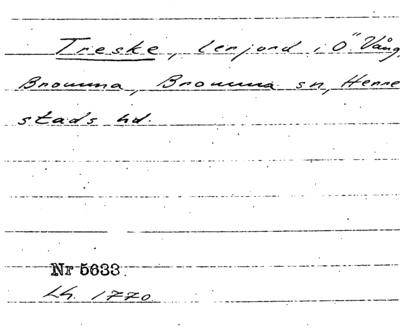 Treske, lerjord i Ö" Vång,
Bromma, Bromma sn, Herre
stads hd.
Nr 5633
Lh. 1770